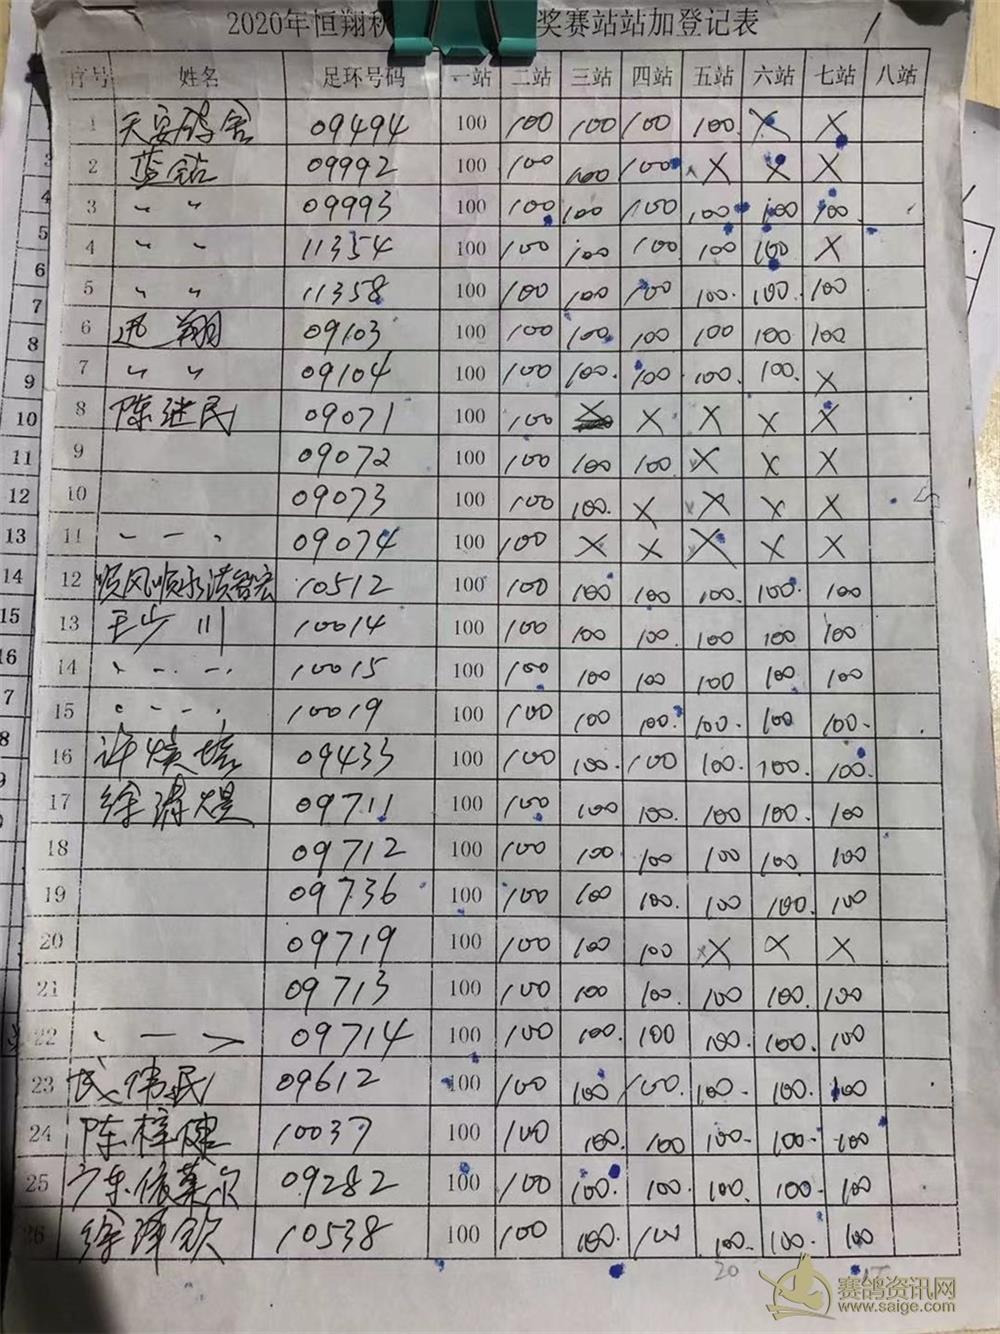 2020年恒翔秋 奖赛站站加登记表
序号 姓名 足环号码 一站 二站 三站 四站 五站 六站 七站 八站
1 天安鸽舍 09494 100 100 100 100 100. X X
2 蓝钻 09992 100 100 100 100 X X X
3 〃 〃 09993 100 100 100 100 100 100 100.
4 〃 〃 11354 100 100 100 100 100 100 X
5 〃 〃 11358 100 100 100 100 100. 100. 100
6 迅翔 09103 100 100 100. 100 100 100 100
7 〃 〃 09104 100 100 100. 100 100. 100. X
8 陈继民 09071 100 100 X X X X X
9 09072 100 100 100 100. X X X
10 09073 100 100 100. X X X X
11 〃 — 〃 09074 100 100 X X X X X
12 顺风顺水洪 10512 100 100 100 100 100. 100. 100
13 王少川 10014 100 100 100 100. 100 100 100
14 〃 — 〃 10015 100 100 100 100 100 100 100
15 〃 — 〃 10019 100 100 100 100. 100. 100 100.
16 许 09433 100 100 100. 100 100. 100. 100.
17 徐 09711 100 100 100 100. 100 100. 100
18 09712 100 100 100 100 100 100 100
19 09736 100 100 100 100. 100 100. 100
20 09719 100 100 100 100 X X X
21 09713 100 100 100 100. 100 100. 100
22 〃 — 〃 09714 100 100 100. 100 100. 100. 100
23 伟民 09612 100 100 100 100. 100. 100. 100
24 陈梓健 10037 100 100 100. 100 100. 100. 100
25 广东依莱尔 09282 100 100 100. 100. 100. 100. 100
26 徐泽钦 10538 100 100 100. 100 100. 100. 100
20
赛鸽资讯网
www.saige.com